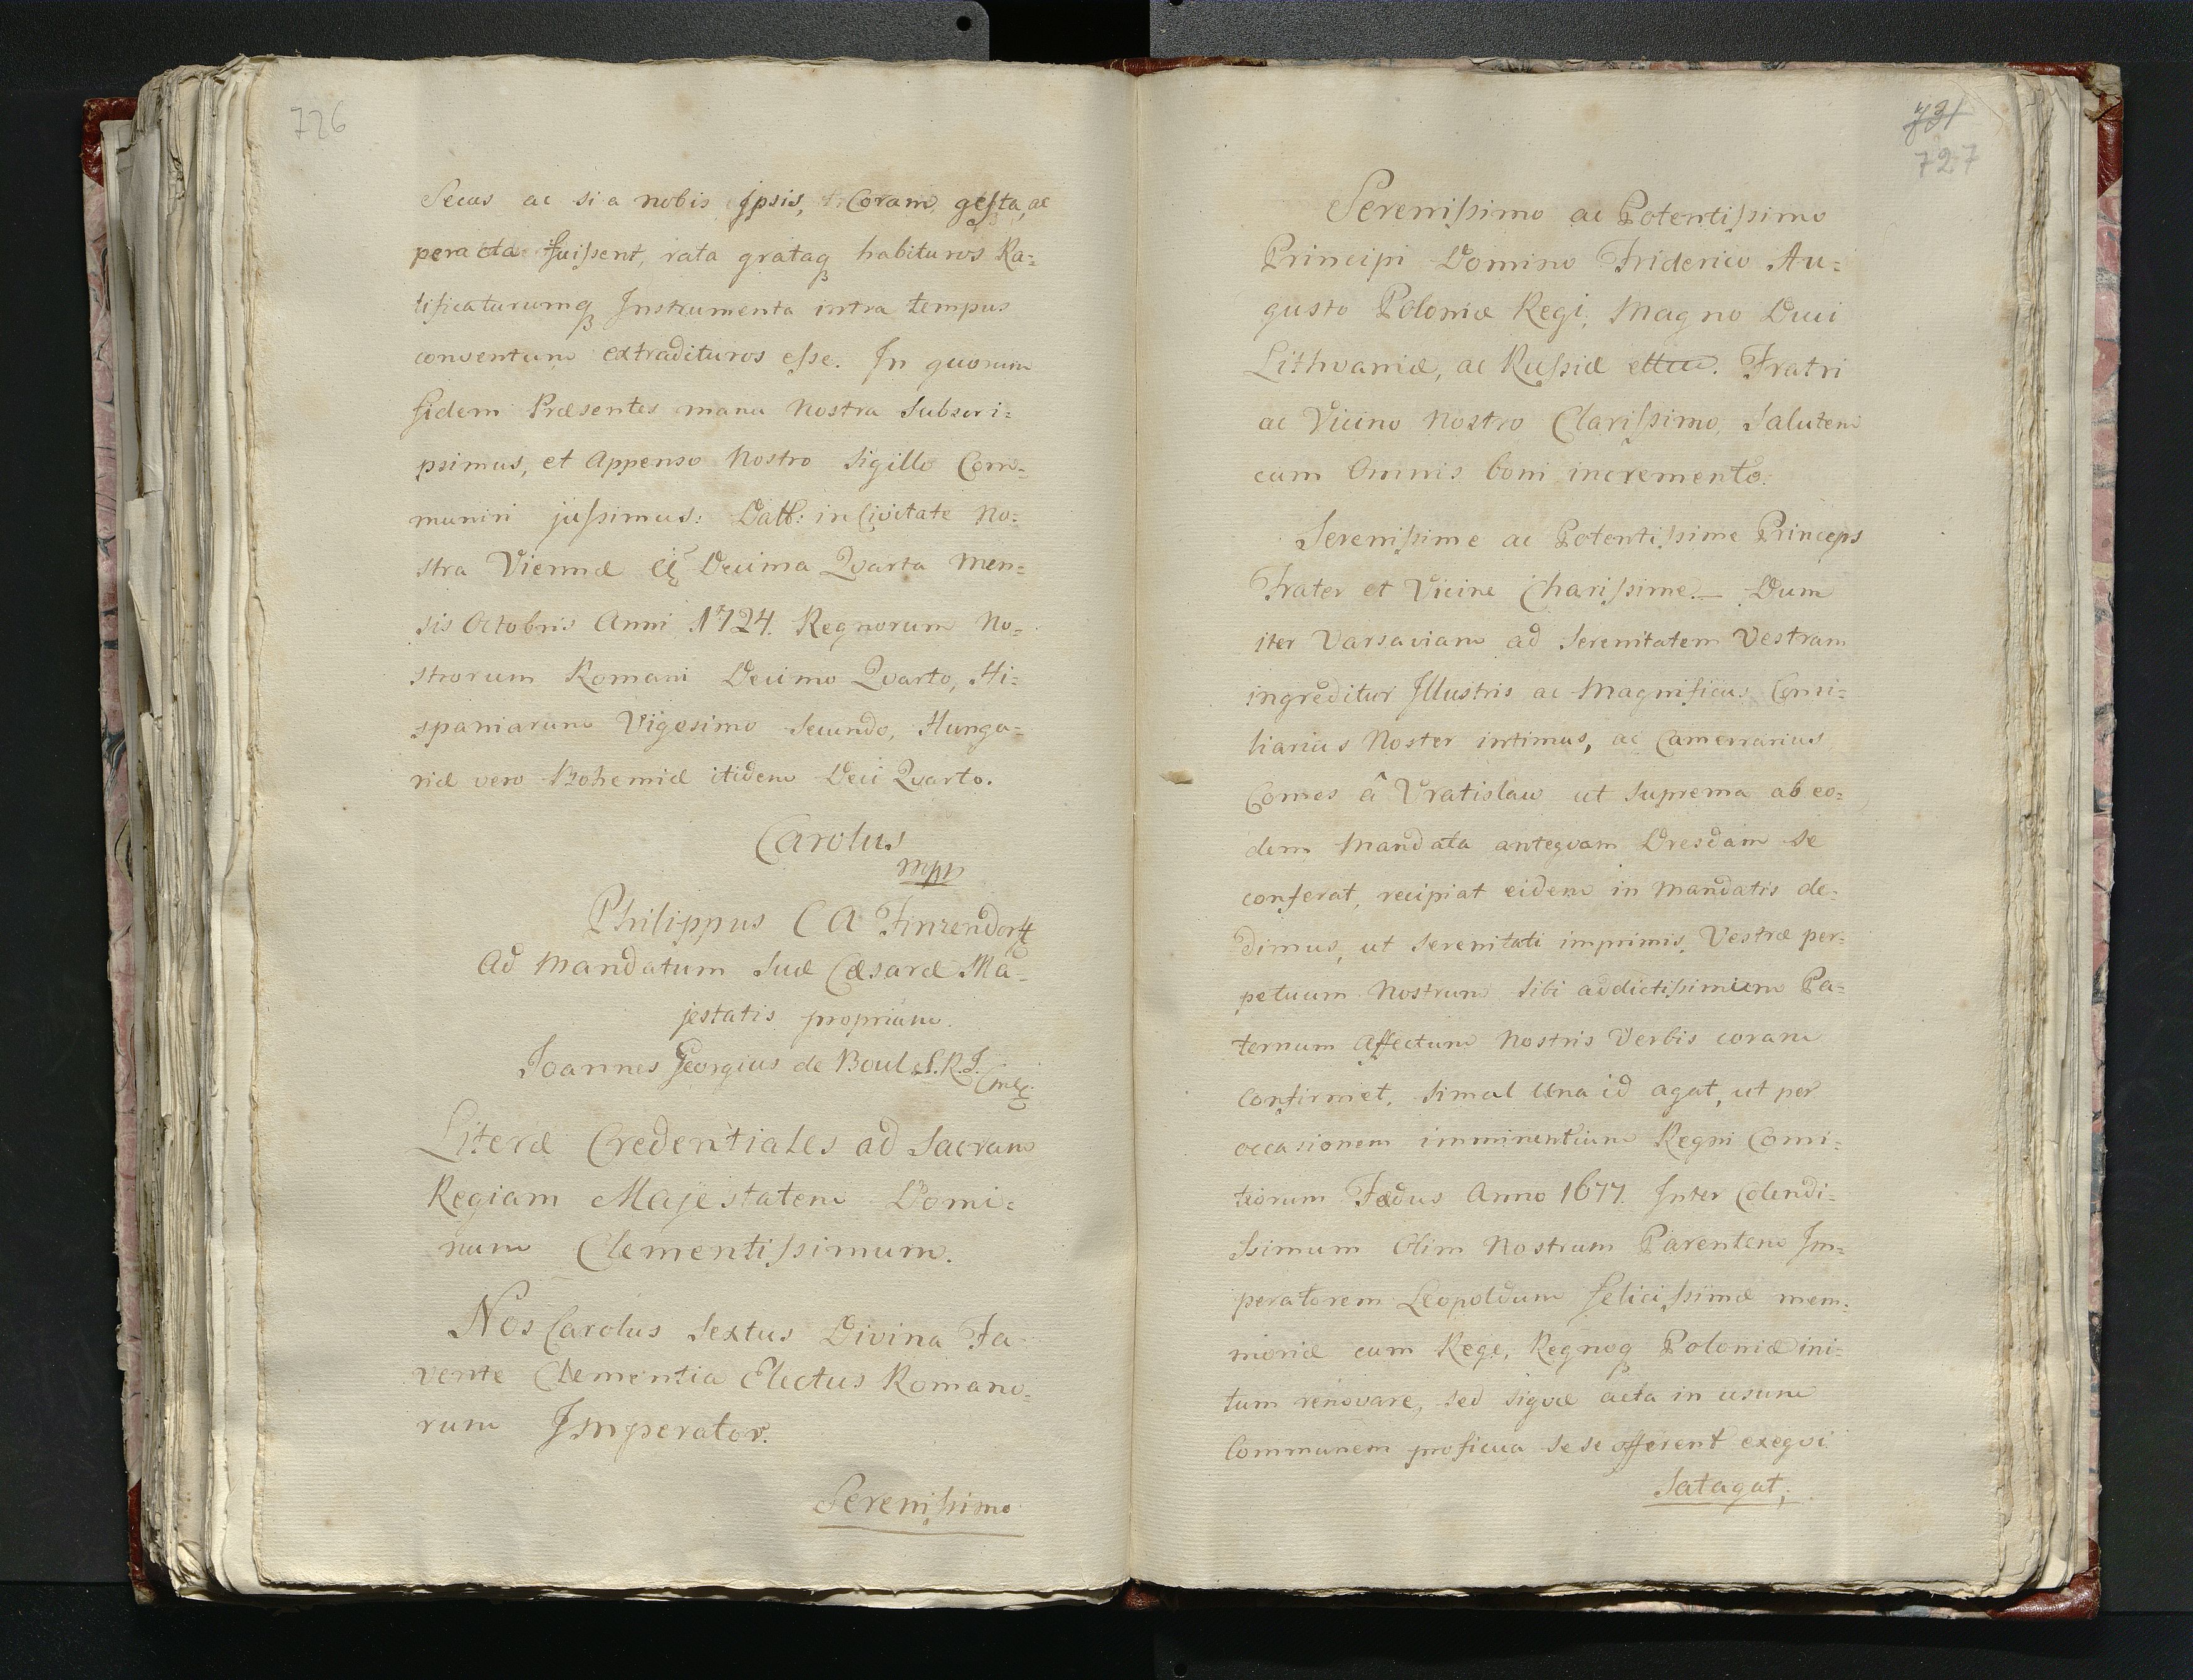 726
Secus ac si a nobis Ipsis, Coram gesta, ac
peracta fuissent, rata grataq̃ habituros Ra=
tificaturumq̃ Instrumenta intra tempus
conventum extradituros esse. In quorum
fidem Præsentes manu Nostra Subscri=
psimus, et Appenso Nostro Sigillo Com=
muniri jussimus: Datt: in Civitate No=
stra Viennæ Decima Qvarta Men=
sis Octobris Anni 1724. Regnorum No=
strorum Romani Decimo Qvarto, Hi=
spaniarum Vigesimo Secundo, Hunga=
riæ vero Bohemiæ itidem Deci Qvarto.
Carolus
mpp
Philippus C A Finzendorff
Ad Mandatum Suæ Cæsareæ Ma=
jestatis proprium.
Joannes Georgius de Boul S.R.I.
Literæ Credentiales ad Sacram
Regiam Majestatem Domi=
num Clementissimum.
Nos Carolus Sextus Divina Fa
vente Clementia Electus Romano=
rum Imperator.
Serenissimo
731
727
Serenissimo ac Potentissimo
Principi Domino Friderico Au=
gusto Poloniæ Regi, Magno Duci
Lithvaniæ, ac Russiæ ettcc. Fratri
ac Vicino Nostro Clarissimo, Salutem
cum Omnis boni incremento.
Serenissime ac Potentissime Princeps
Frater et Vicine Charissime.— Dum
iter Varsaviam ad Serenitatem Vestram
ingreditur Illustris ac Magnificus Consi=
liarius Noster intimus, ac Camerrarius
Comes â Vratislaw ut Suprema ab eo=
dem Mandata anteqvam Dresdam se
conferat, recipiat eidem in Mandatis de=
dimus, ut Serenitati imprimis, Vestræ per=
petuum Nostrum Sibi addictissimum Pa=
ternum Affectum Nostris Verbis coram
Confirmet, Simul Una id agat, ut per
occasionem imminentium Regni Comi=
tiorum Fædus Anno 1677. Inter Colendi=
ssimum Olim Nostrum Parentem Im=
peratorem Leopoldum felicissimæ mem=
moriæ cum Rege, Regnoq̃ Poloniæ ini=
tum renovare, sed siqvæ acta in usum
Communem proficua sese offerent exeqvi
Satagat,